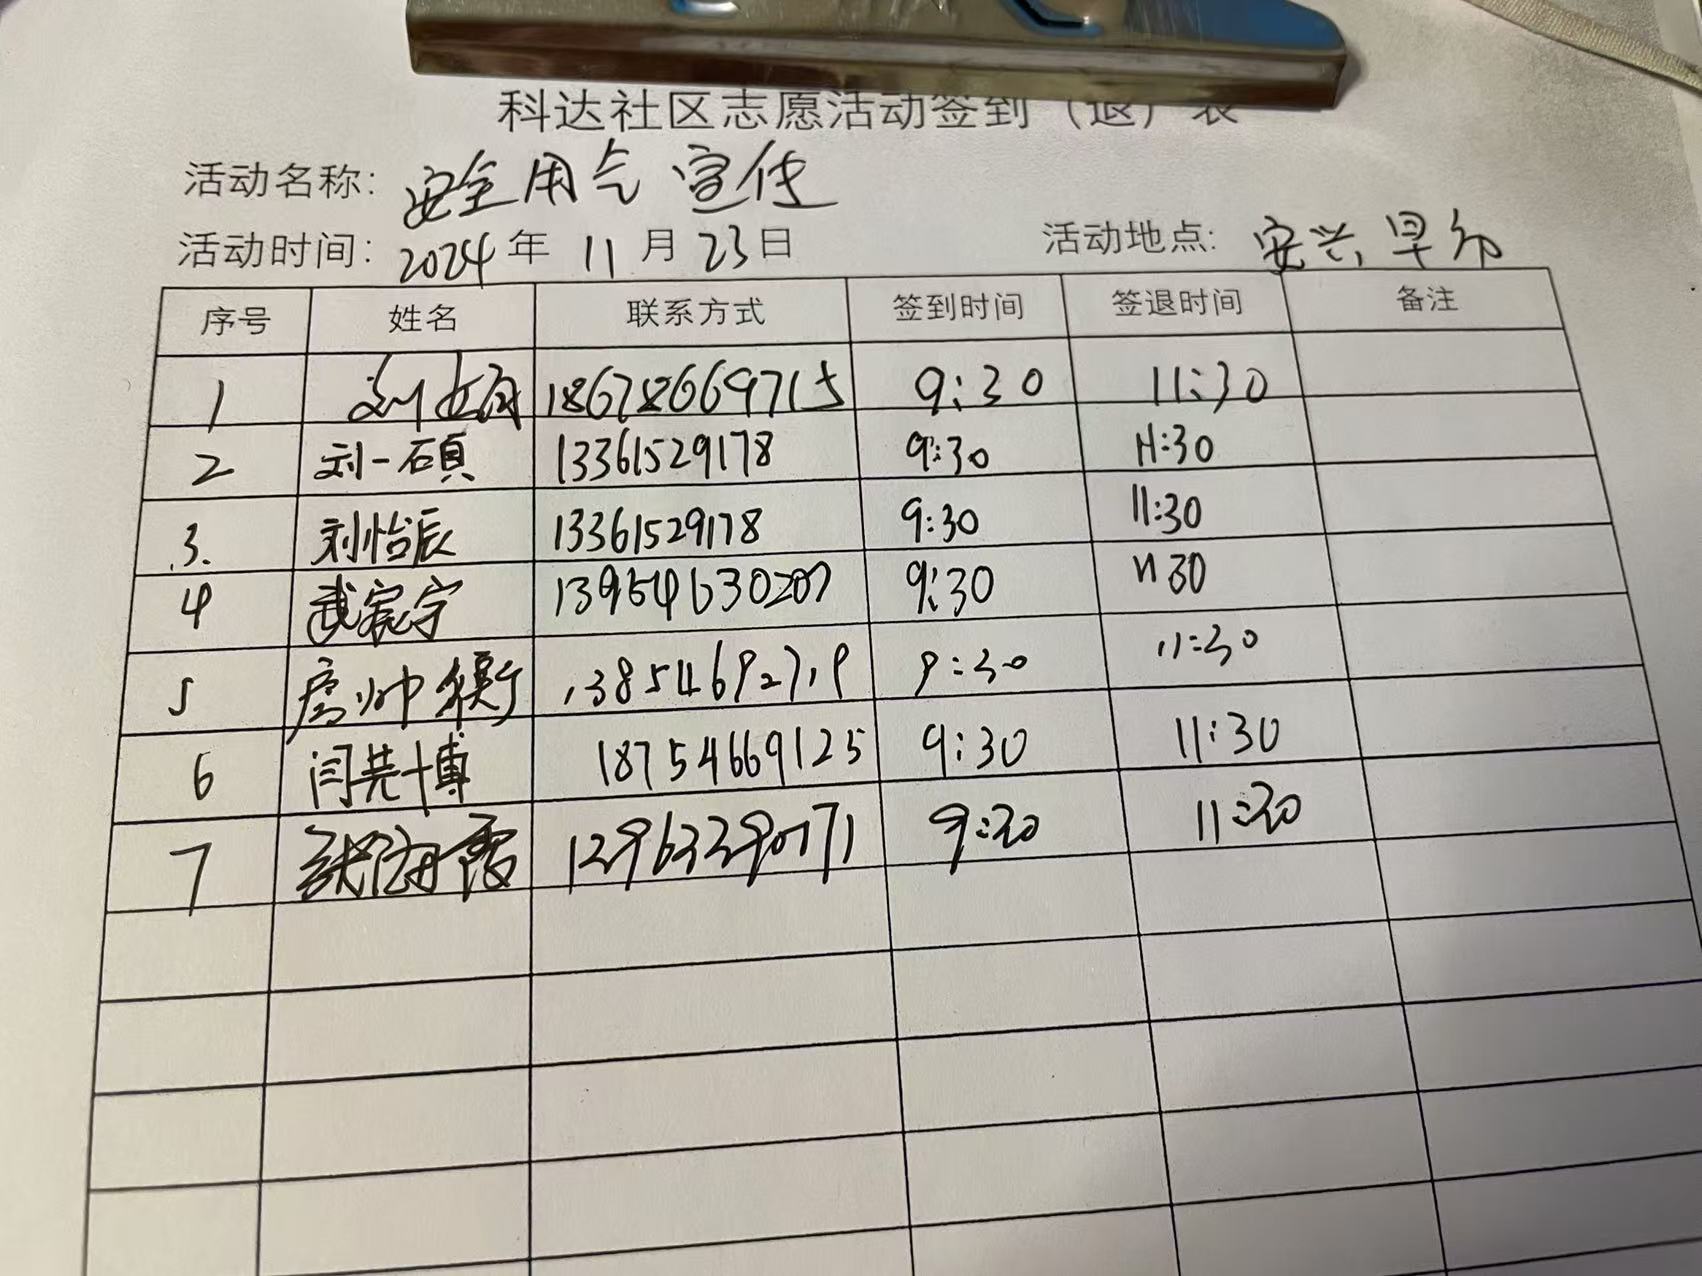 科达社区志愿活动签到（退）表
活动名称：安全用气宣传
活动时间：2024年11月23日 活动地点：安兴早市
序号 姓名 联系方式 签到时间 签退时间 备注
1 刘 18678669715 9:30 11:30
2 刘一碩 13361529178 9:30 11:30
3. 刘怡辰 13361529178 9:30 11:30
4 武宸宇 13954630207 9:30 11 30
5 13854692719 9:30 11:30
6 闫芸博 18754669125 9:30 11:30
7 张海霞 9:30 11:30